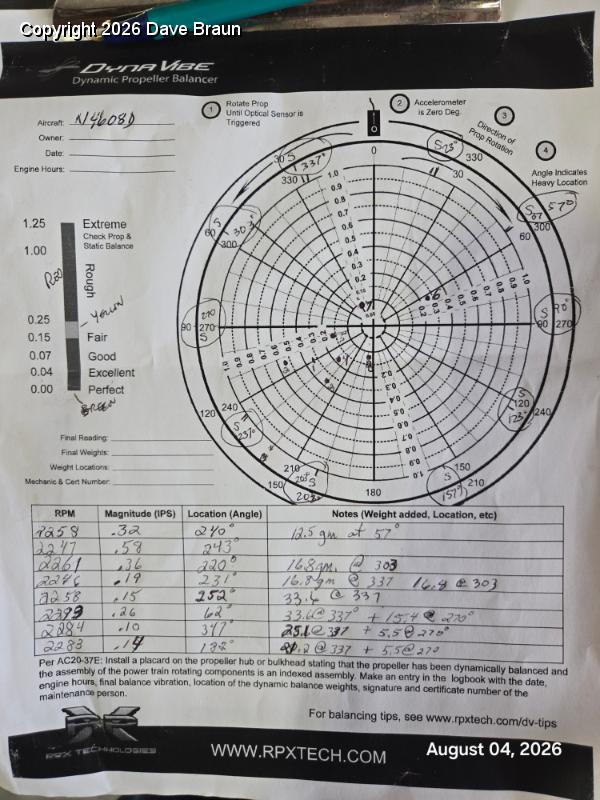 Copyright 2026 Dave Braun
DYNAVIBE
Dynamic Propeller Balancer
Aircraft: N4608D
Owner:
Date:
Engine Hours:
1 Rotate Prop
Until Optical Sensor is
Triggered
2 Accelerometer
is Zero Deg.
3
Direction of
Prop Rotation
4
Angle Indicates
Heavy Location
1.25 Extreme
Check Prop &
Static Balance
1.00
Rough
RED
YELLOW
0.25
0.15 Fair
0.07 Good
0.04 Excellent
0.00 Perfect
GREEN
0
30 S 337°
330
S 23° 330
30
S 303°
60
300
S 57°
300
60
270
90 270
S
S 90°
90 270
120 240
S 237°
S
120 240
123°
210
150 S
203°
180
150
S 210
157°
1.0
0.9
0.8
0.7
0.6
0.5
0.4
0.3
0.2
Final Reading:
Final Weights:
Weight Locations:
Mechanic & Cert Number:
RPM Magnitude (IPS) Location (Angle) Notes (Weight added, Location, etc)
2258 .32 240° 12.5 gm at 57°
2247 .58 243°
2261 .36 220° 16.8gm @ 303
2246 .19 231° 16.8gm @ 337 16.8 @ 303
2258 .15 252° 33.6 @ 337
.26 62° 33.6@ 337° + 15.4 @ 270°
2284 .10 347° 25.1@ 337 + 5.5@ 270°
2283 .14 @ 337 + 5.5@ 270
Per AC20-37E: Install a placard on the propeller hub or bulkhead stating that the propeller has been dynamically balanced and
the assembly of the power train rotating components is an indexed assembly. Make an entry in the logbook with the date,
engine hours, final balance vibration, location of the dynamic balance weights, signature and certificate number of the
maintenance person.
For balancing tips, see www.rpxtech.com/dv-tips
RPX TECHNOLOGIES
WWW.RPXTECH.COM
August 04, 2026